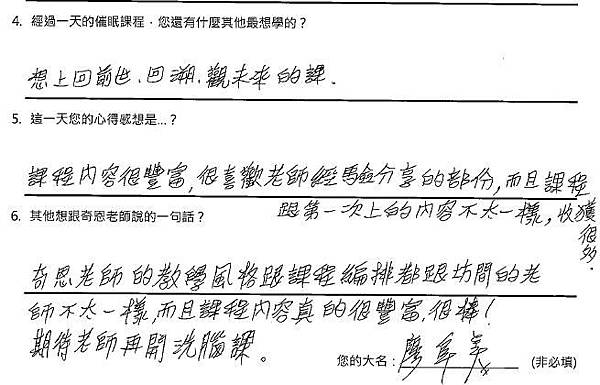 4. 經過一天的催眠課程，您還有什麼其他最想學的？
想上回前世.回溯.觀未來的課.
5. 這一天您的心得感想是...？
課程內容很豐富,很喜歡老師經驗分享的部份,而且課程
跟第一次上的內容不太一樣,收獲很多.
6. 其他想跟奇恩老師說的一句話？
奇恩老師的教學風格跟課程編排都跟坊間的老
師不太一樣,而且課程內容真的很豐富,很棒!
期待老師再開洗腦課。
您的大名： 廖 美 (非必填)